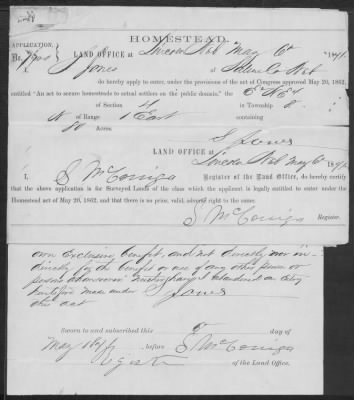 HOMESTEAD.
APPLICATION. LAND OFFICE at Lincoln Neb May 6th 1871.
No.
I, S Jones of Saline Co Neb
do hereby apply to enter, under the provisions of the act of Congress approved May 20, 1862,
entitled "An act to secure homesteads to actual settlers on the public domain," the
of Section 4 in Township 8
N of Range 1 East containing
80 Acres.
S Jones
LAND OFFICE at
Lincoln Neb May 6 187
I, S McConiga Register of the Land Office, do hereby certify
that the above application is for Surveyed Lands of the class which the applicant is legally entitled to enter under the
Homestead act of May 20, 1862, and that there is no prior, valid, adverse right to the same.
S McConiga Register.
own exclusive benefit, and not directly nor in-
directly for the benefit or use of any other person or
persons whomsoever
under S Jones
this act
Sworn to and subscribed this 6 day of
May before S McConiga
Register of the Land Office.